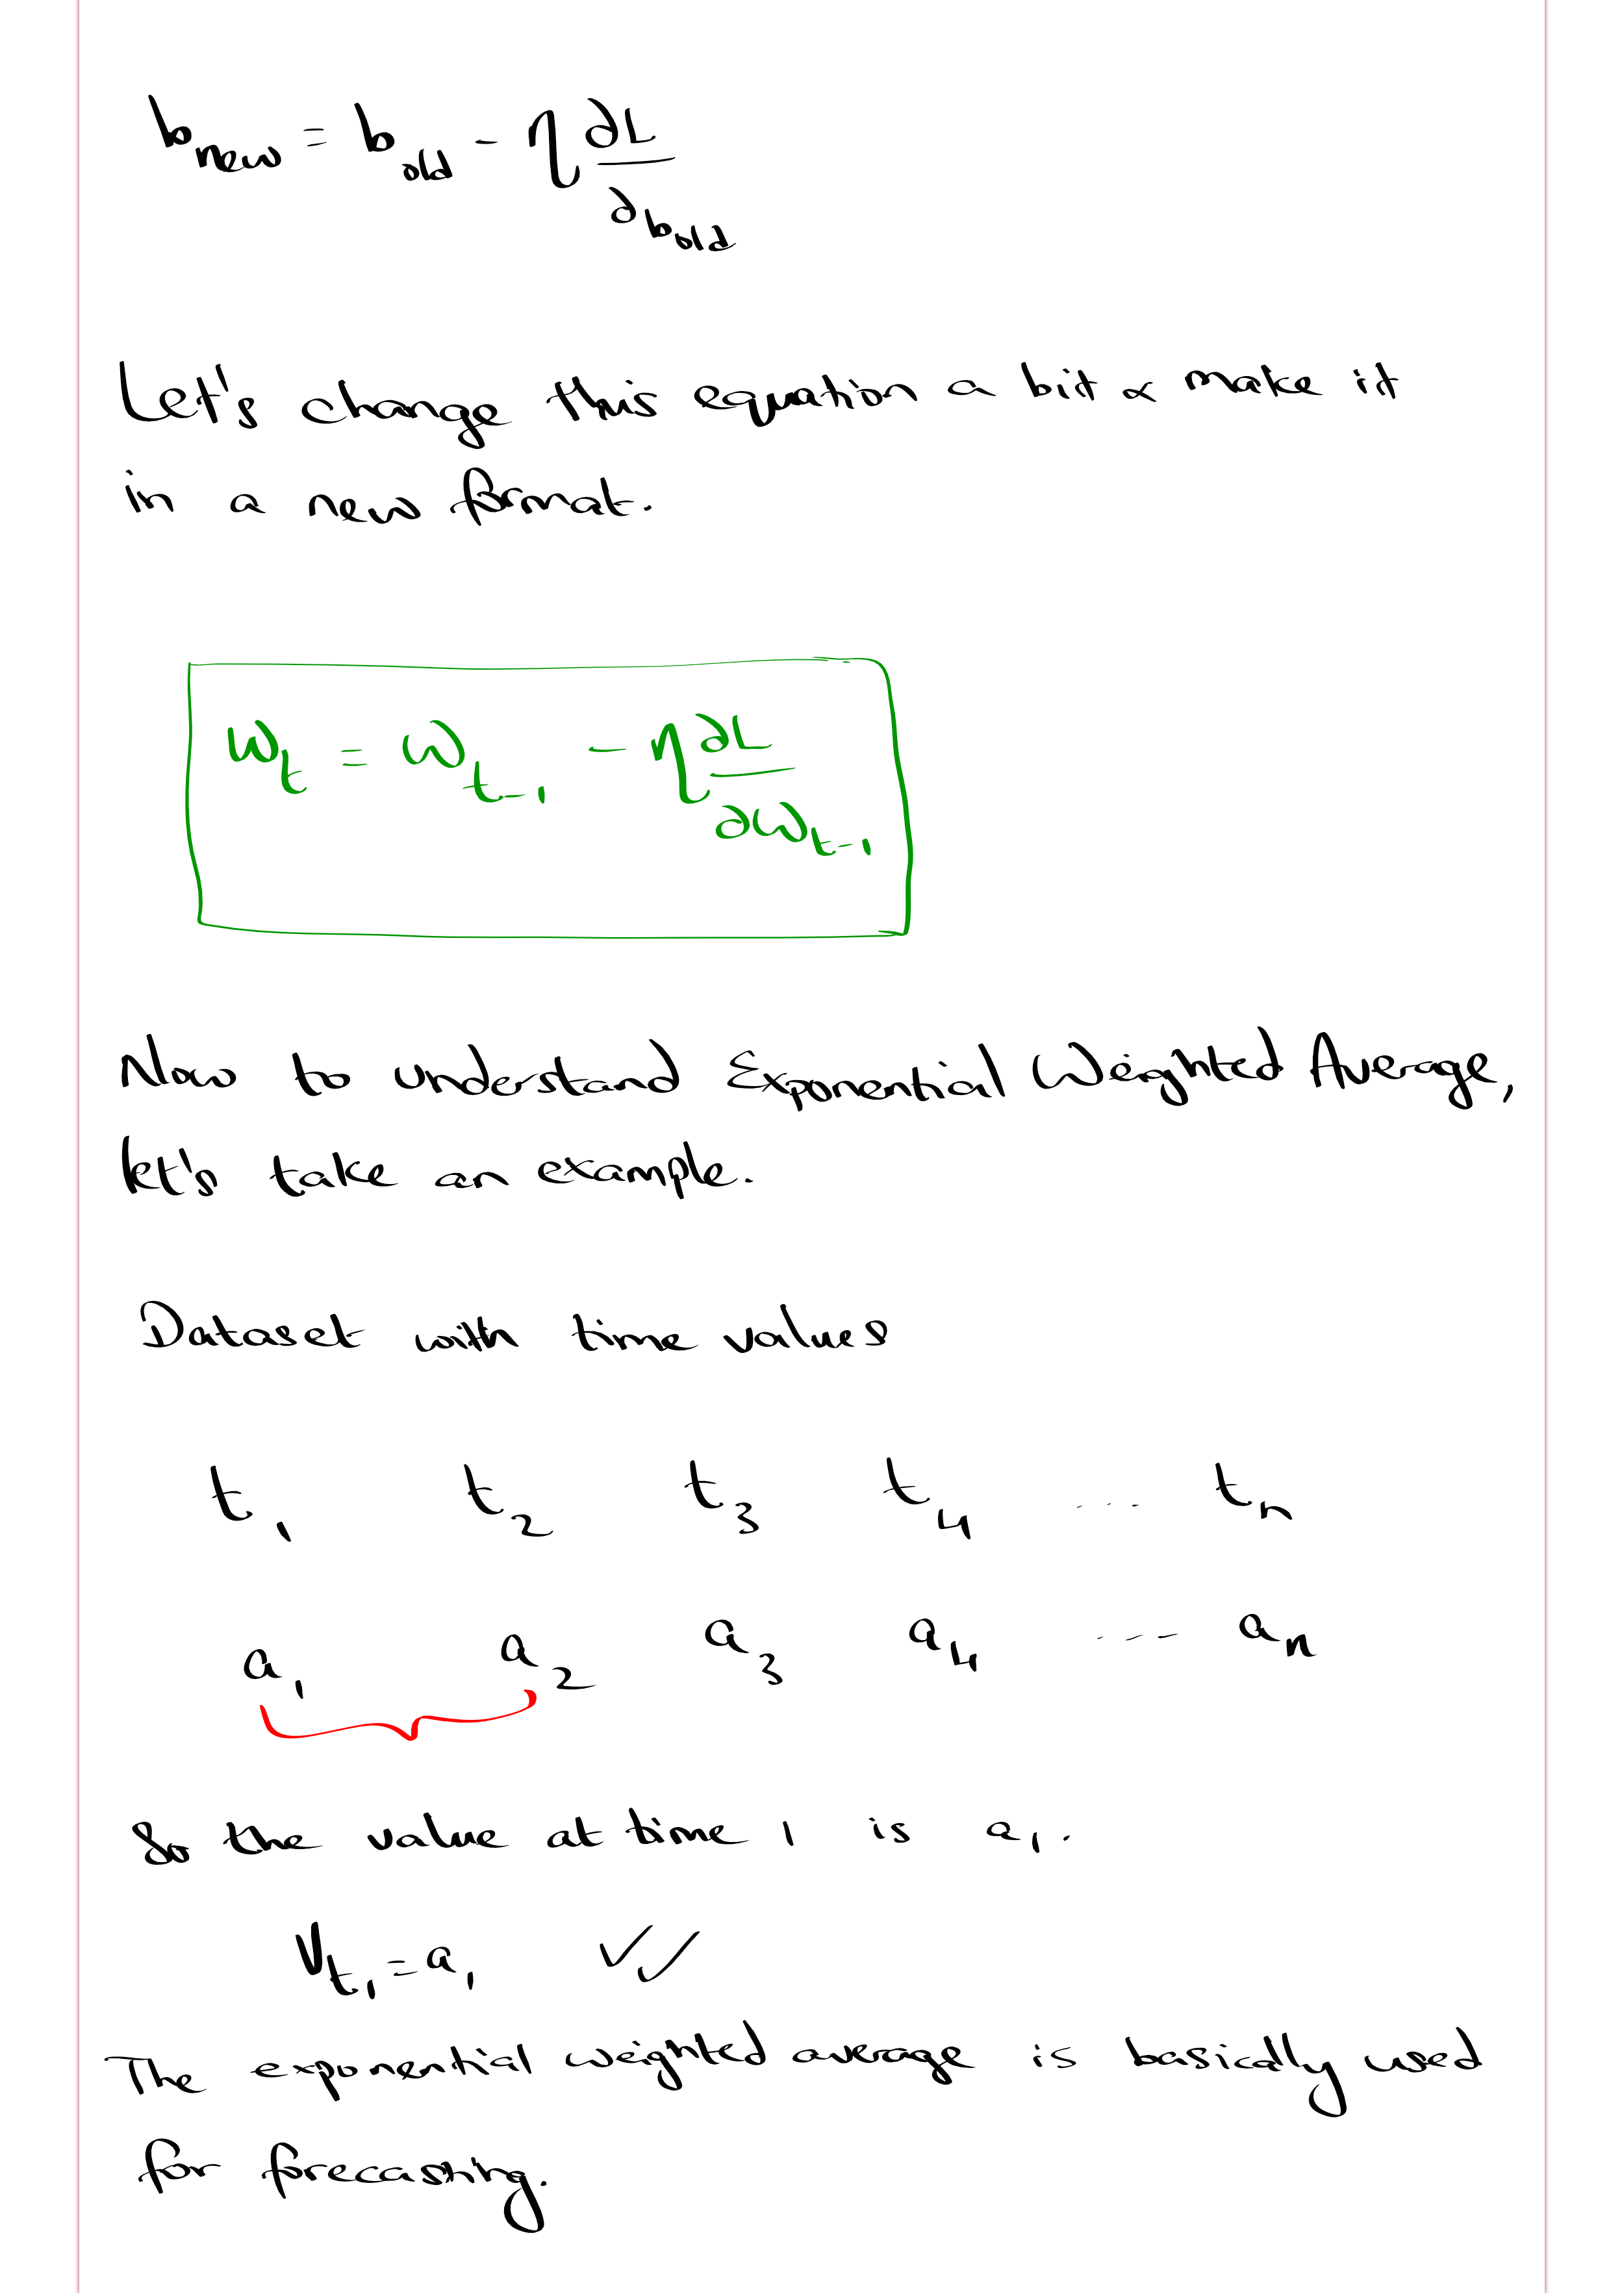 b_new = b_old - η ∂L / ∂b_old
Let's change this equation a bit & make it
in a new format.
ω_t = ω_{t-1} - η ∂L / ∂ω_{t-1}
Now to understand Exponential Weighted Average,
let's take an example.
Dataset with time values
t_1 t_2 t_3 t_4 ... t_n
a_1 a_2 a_3 a_4 ... a_n
So the value at time 1 is a_1.
V_{t_1} = a_1 ✓✓
The exponential weighted average is basically used
for forecasting.